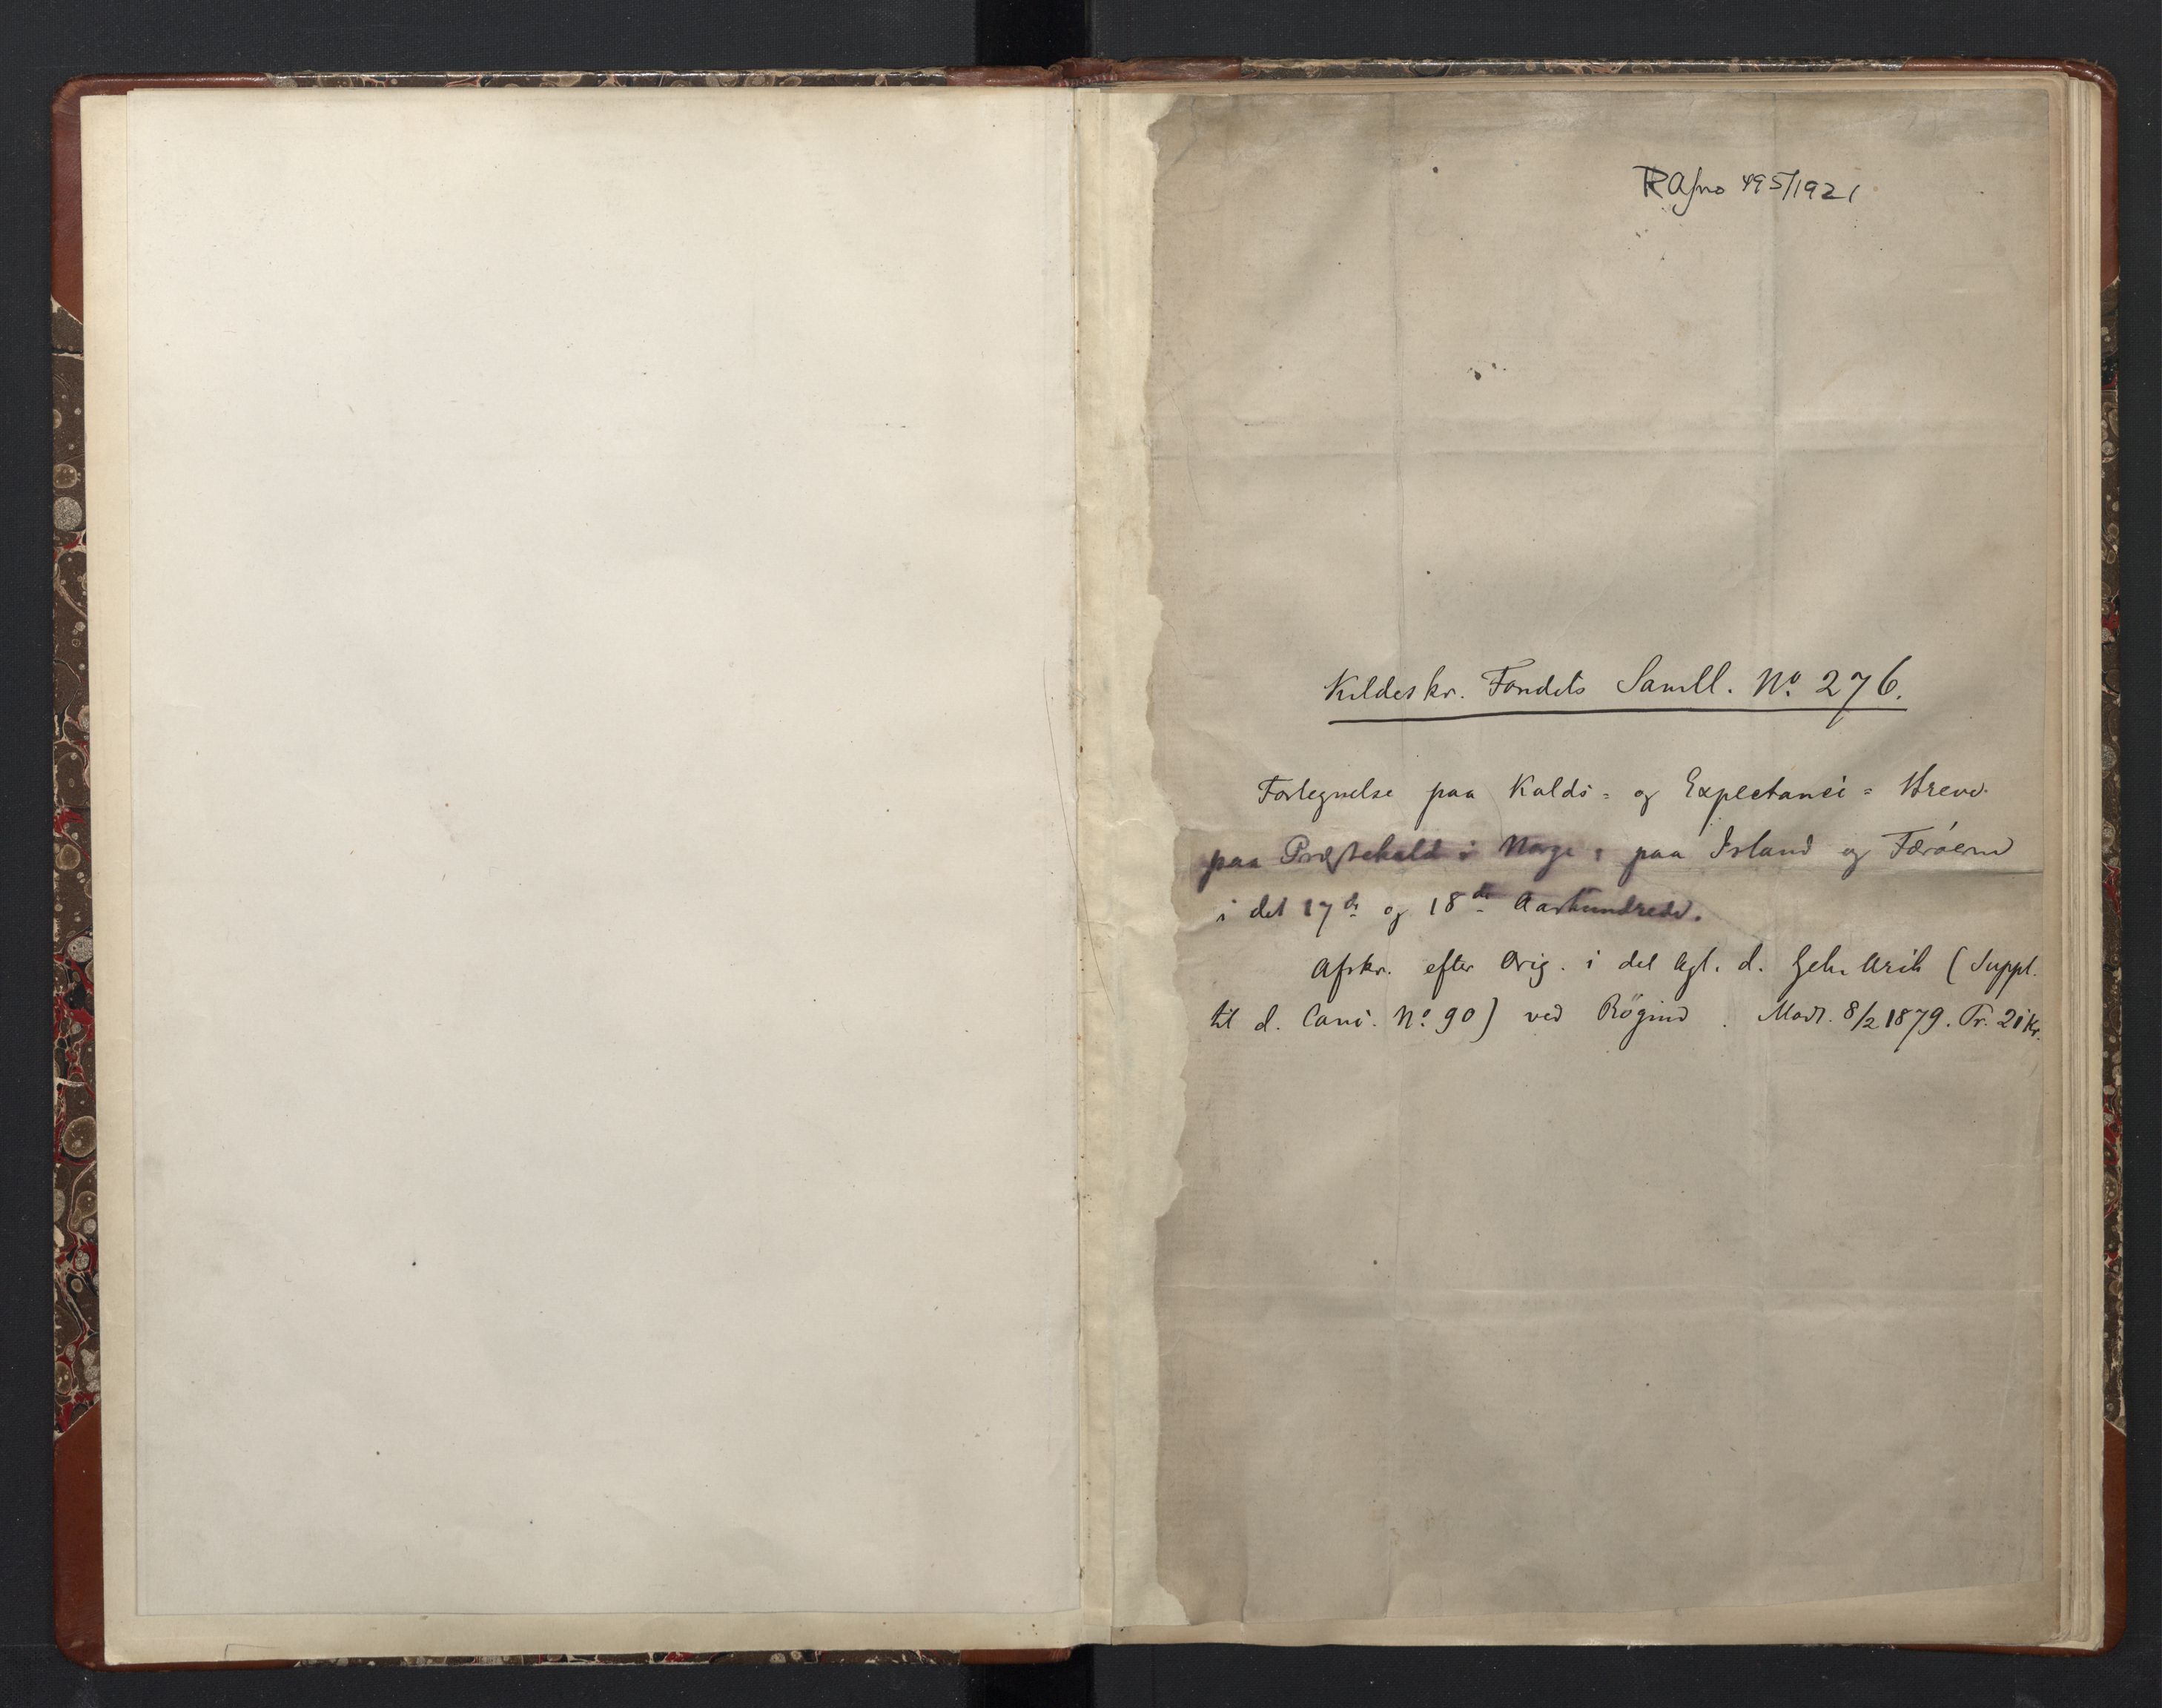 RA jno 495/1921
Kildeskr. Fondets Samll. No 276.
Fortegnelse paa Kalds- og Expectanci- Breve
paa Præstekald i Norge, paa Island og Færøerne
i det 17de og 18de Aarhundrede.
Afskr. efter Orig. i det kgl. d. Geh. Arch (Suppl.
til d. Canc. No 90) ved Rögind. Modt. 8/2 1879. Pr. 21 Kr.